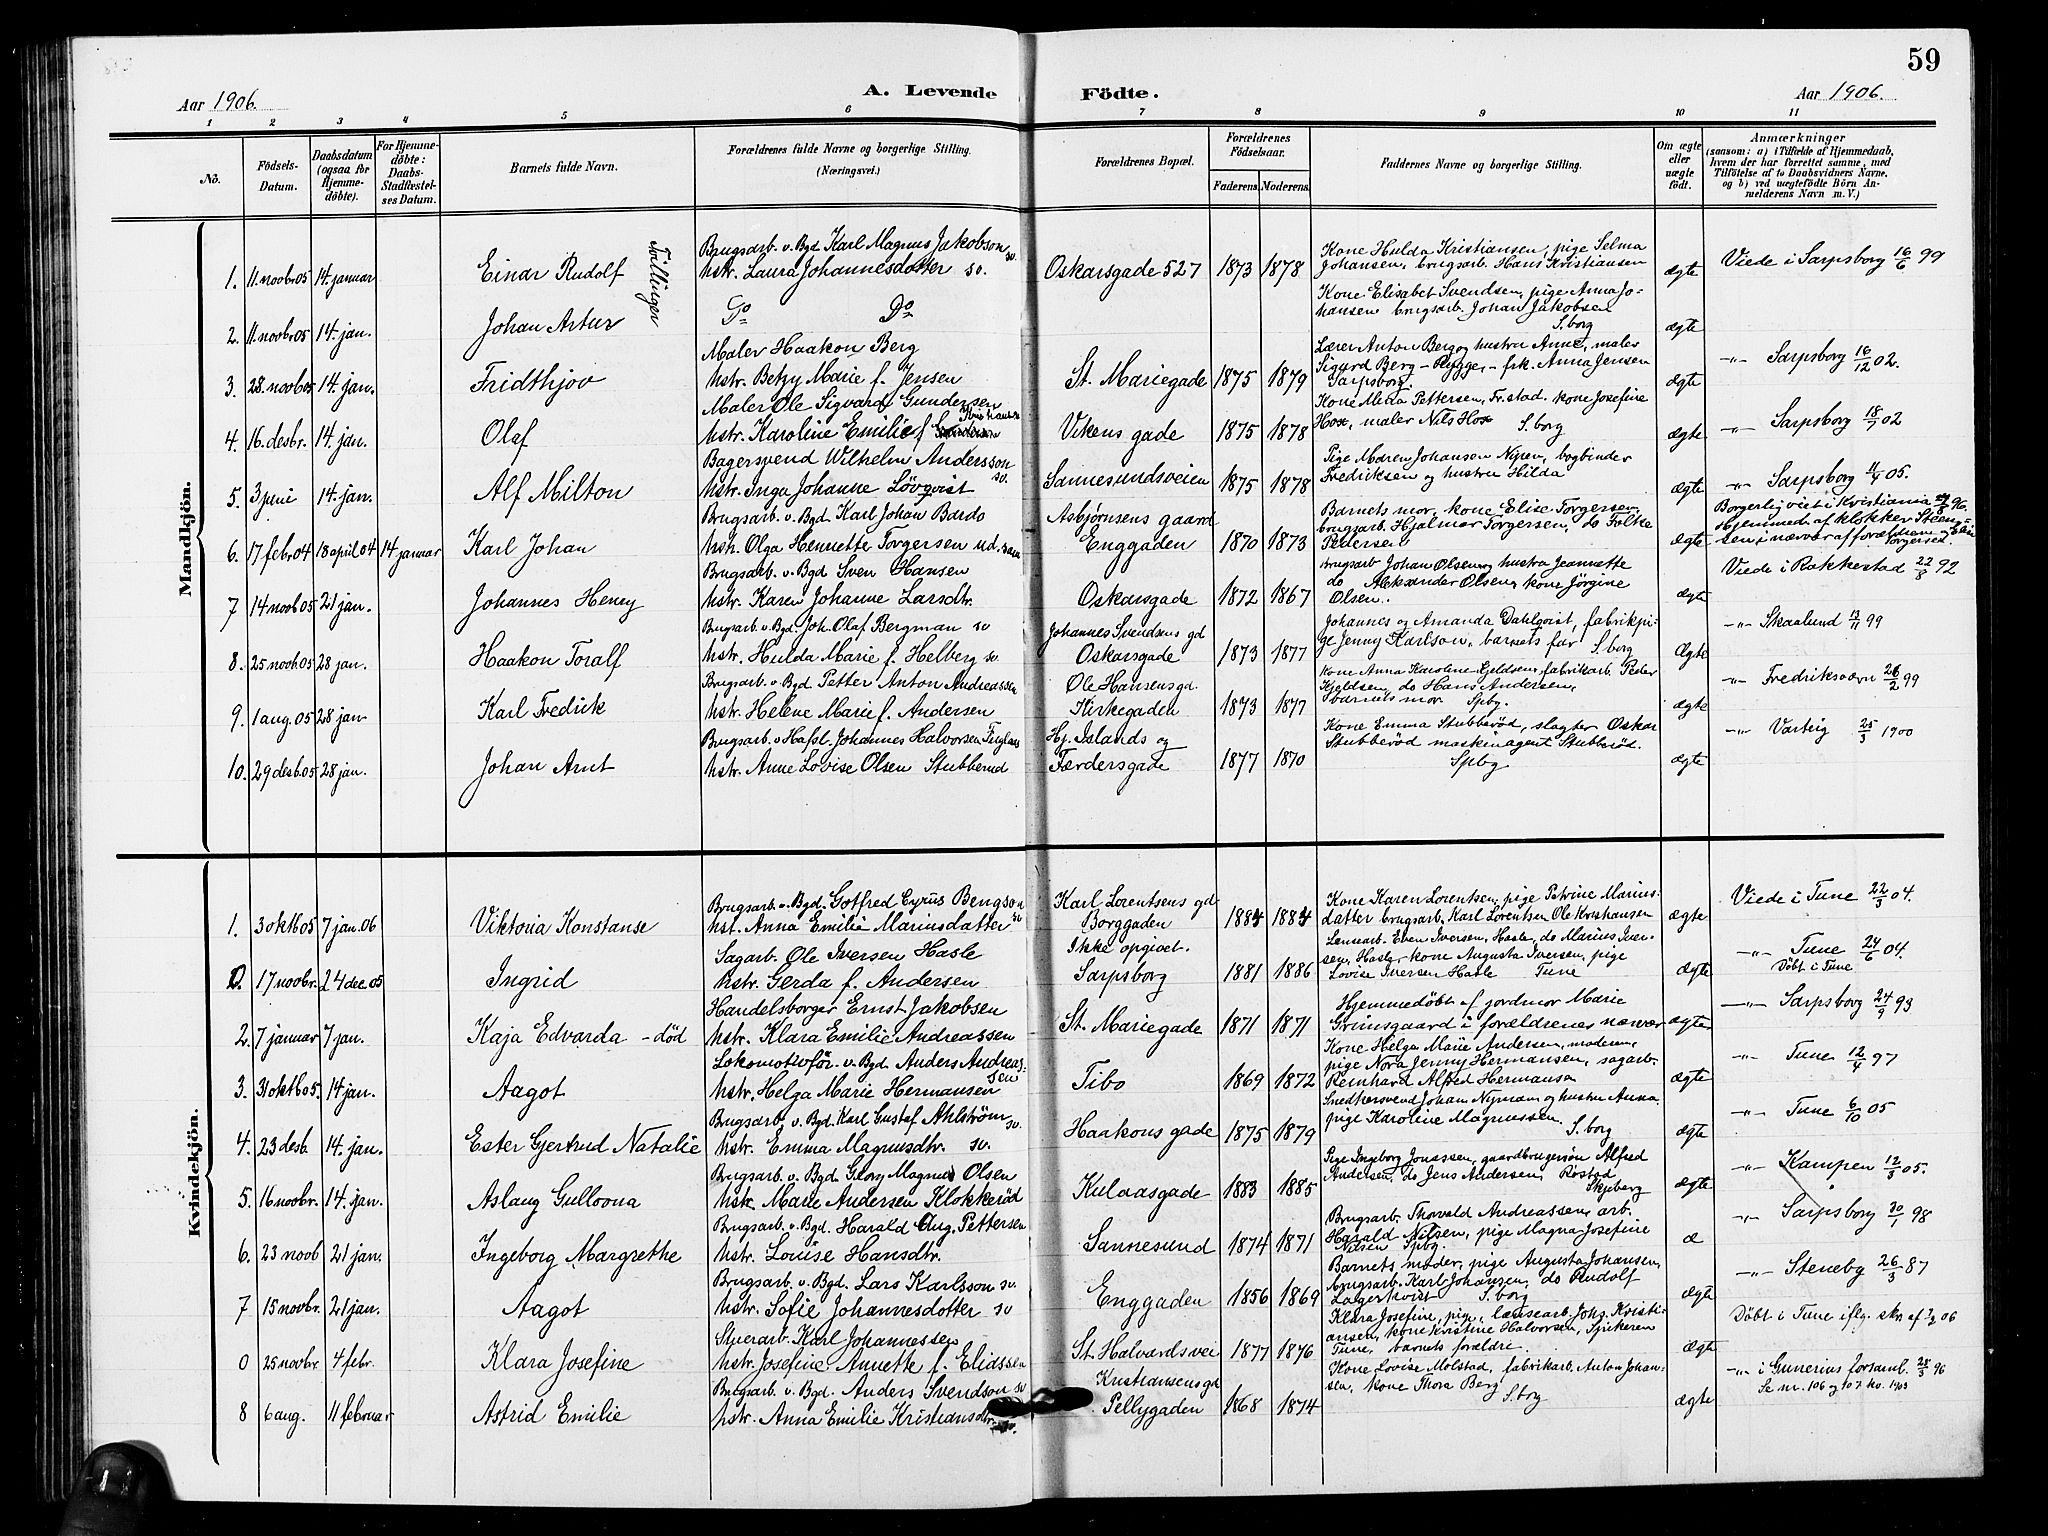 59
Aar 1906.
A. Levende
Födte.
Aar 1906.
1 2 3 4 5 6 7 8 9 10 11
No.
Födsels-Datum.
Daabsdatum (ogsaa for Hjemmedöbte).
For Hjemmedöbte: Daabs-Stadfæstelses Datum.
Barnets fulde Navn.
Forældrenes fulde Navne og borgerlige Stilling.
(Næringsvei.)
Forældrenes Bopæl.
Forældrenes Födselsaar.
Faderens. Moderens.
Faddernes Navne og borgerlige Stilling.
Om ægte eller uægte födt.
Anmærkninger
(saasom: a) i Tilfælde af Hjemmedaab, hvem der har forrettet samme, med Tilföielse af to Daabsvidners Navne, og b) ved uægtefödte Börn Anmelderens Navn m. V.)
Mandkjön.
Tvillinger
Brugsarb. v. Bgd Karl Magnus Jakobson sv.
1. 11 novbr 05 14. januar Einar Rudolf hstr. Laura Johannesdotter sv. Oskarsgade 527 1873 1878
Kone Hulda Kristiansen, pige Selma
Johansen, brugsarb. Hans Kristiansen
ægte Viede i Sarpsborg 16/6 99
2. 11. novbr 05 14. jan. Johan Artur Do Do
Kone Elisabet Svendsen, pige Anna Jo-
hansen brugsarb. Johan Jakobsen
S.borg ægte
Maler Haakon Berg
3. 28. novb 05 14. jan. Fridthjov hstr. Betzy Marie f. Jensen St. Mariegade 1875 1879
Lærer Anton Berg og hustru Anne, maler
Sigurd Berg - Rygge, - frk. Anna Jensen
Sarpsborg ægte -"- Sarpsborg 16/12 02.
Maler Ole Sigvard Gundersen
4. 16. desbr. 14. jan. Olaf hstr. Karoline Emilie f. Kristiansen Vikens gade 1875 1878
Kone Mena Pettersen, Fr.stad. kone Josefine
Hox, maler Nils Hox S.borg ægte -"- Sarpsborg 18/7 02
Bagersvend Wilhelm Andersson sv.
5. 3 juni 14. jan. Alf Milton hstr. Inga Johanne Lövqvist Sannesundsveien 1875 1878
Pige Maren Johansen Nipen, bogbinder
Fredriksen og hustru Hilda ægte -"- Sarpsborg 05.
Brugsarb. v. Bgd Karl Johan Bardo
6. 17 febr 04 18 april 04 14 januar Karl Johan hstr. Olga Henriette Torgersen Asbjørnsens gaard Enggaden 1870 1873
Barnets mor, kone Elise Torgersen,
brugsarb. Hjalmar Torgersen, do Folke
Pedersen ægte
Borgerlig viet i Kristiania 96.
Hjemmed. af klokker Steen-
sen i nærvær af forældrene og Elise
Torgersen
Brugsarb. v. Bgd Sven Hansen
7 14 novb 05 21 jan. Johannes Henry hstr. Karen Johanne Larsdtr. Oskarsgade 1872 1867
brugsarb Johan Olsen og hustru Jeannette
do Aleksander Olsen, kone Jörgine
Olsen. ægte Viede i Rakkestad 22/8 92
Brugsarb. v. Bgd. Joh. Olaf Bergman sv
8. 25 novb. 05 28 jan. Haakon Toralf hstr. Hulda Marie f. Helberg sv. Johannes Svendsens gd Oskarsgade 1873 1877
Johannes og Amanda Dahlqvist, fabrikpi-
ge Jenny Karlson, barnets far S.borg
Ægte -"- Skaalund 13/11 99
Brugsarb. v. Bgd Petter Anton Andreassen
9. 1 aug. 05 28 jan Karl Fredrik hstr. Helene Marie f. Andersen Ole Hansens gd. Kirkegaden 1873 1877
Kone Anna Karoline Gjeldsen, fabrikarb. Peder
Kjeldsen, do Hans Andersen,
barnets mor Spbg. ægte -"- Fredriksværn 26/2 99
Brugsarb. v. Hafsl. Johannes Halvorsen
10. 29 desb. 05 28 jan. Johan Arnt hstr. Anne Lovise Olsen Stubberud Hj. Islands og Færdersgade 1877 1870
Kone Emma Stubberöd, slagter Oskar
Stubberöd maskinagent Stubberöd.
Spbg ægte -"- Varteig 25/3 1900
Kvindekjön.
Brugsarb. v. Bgd. Gotfred Cyrus Bengson sv
1. 3 oktb 05 7 jan. 06 Viktoria Konstanse hst. Anna Emilie Mariusdatter Karl Lorentsens gd Borggaden 1884 1884
Kone Karen Lorentsen, pige Petrine Marius-
datter brugsarb. Karl Lorentsen Ole Kristiansen
ægte Viede i Tune 22/3 04.
Sagarb. Ole Iversen Hasle
0. 17 novbr. 24 dec. 05 Ingrid hstr. Gerda f. Andersen Ikke opgivet. Sarpsborg 1881 1886
Lensearb. Even Iversen, Hasle, do Marius Iver-
sen, Hasle, kone Augusta Iversen, pige
Lovise Iversen Hasle Tune Ægte -"- Tune 24/6 04.
Döbt i Tune
Handelsborger Ernst Jakobsen
2. 7 januar 7 jan. Kaja Edvarda - död hstr. Klara Emilie Andreassen St. Mariegade 1871 1871
Hjemmedöbt af jordmor Marie
Grimsgaard i forældrenes nærvær ægte -"- Sarpsborg 24/9 93
Lokomotivför. v. Bgd. Anders Andreas-
sen
3. 31 oktb 05. 14 jan. Aagot hstr. Helga Marie Hermansen Tibo 1869 1872
Kone Helga Marie Andersen, moderen,
pige Nora Jenny Hermansen, sagarb.
Reinhard Alfred Hermansen ægte -"- Tune 12/4 97
Brugsarb. v. Bgd. Karl Gustaf Ahlström sv.
4. 23 desb. 14. jan. Ester Gjertrud Natalie hstr. Emma Magnusdtr. sv. Haakons gade 1875 1879
Snedkersvend Johan Nyman og hustru Anna,
pige Karoline Magnussen.
S.borg ægte -"- Tune 6/10 05
Brugsarb. v. Bgd Georg Magnus Olsen
5. 16 novbr. 14. jan. Aslaug Gullovna hstr. Marie Andersen Klokkeröd Kulaasgade 1883 1885
Pige Ingeborg Jonassen, gaardbrugersön Alfred
Andersen, do Jens Andersen, Röstad
Skjeberg ægte -"- Kampen 12/3 05.
Brugsarb. v. Bgd. Harald Aug. Pettersen
6. 23 novb 21 jan. Ingeborg Margrethe hstr. Louise Hansdtr. Sannesund 1874 1871
Brugsarb. Thorvald Andreassen, arb.
Harald Nilsen, pige Magna Josefine
Nilsen Spbg. æ -"- Sarpsborg 30/1 98
Brugsarb. v. Bgd. Lars Karlsson sv.
7 15 novbr. 21 jan. Aagot hstr. Sofie Johannesdotter sv Enggaden 1856 1869
Barnets moder, pige Augusta Johansen,
brugsarb. Karl Johansen, do Rudolf
Lagerkvist S.borg ægte -"- Steneby 26/3 87
Styerarb. Karl Johannessen
0 25 novbr. 4 febr. Klara Josefine hstr. Josefine Annette f. Eliassen St. Halvardsvei 1877 1876
Klara Josefine, pige, lænsearb. Johs. Kristi-
ansen, kone Kristine Halvorsen, Spikeren
Tune, barnets forældre. ægte Döbt i Tune iflg. skr. af 7/2 06
Brugsarb. v. Bgd. Anders Svendson sv
8 6 aug. 11 februar Astrid Emilie hstr. Anna Emilie Kristiansdtr. Kristiansens gd Pellygaden 1868 1874
Kone Lovise Molstad, fabrikarb. Anton Johan-
sen, kone Thora Berg S.borg
ægte -"- i Gunerius forsaml. 28/3 96
Se nr. 106 og 107 ko. 1903